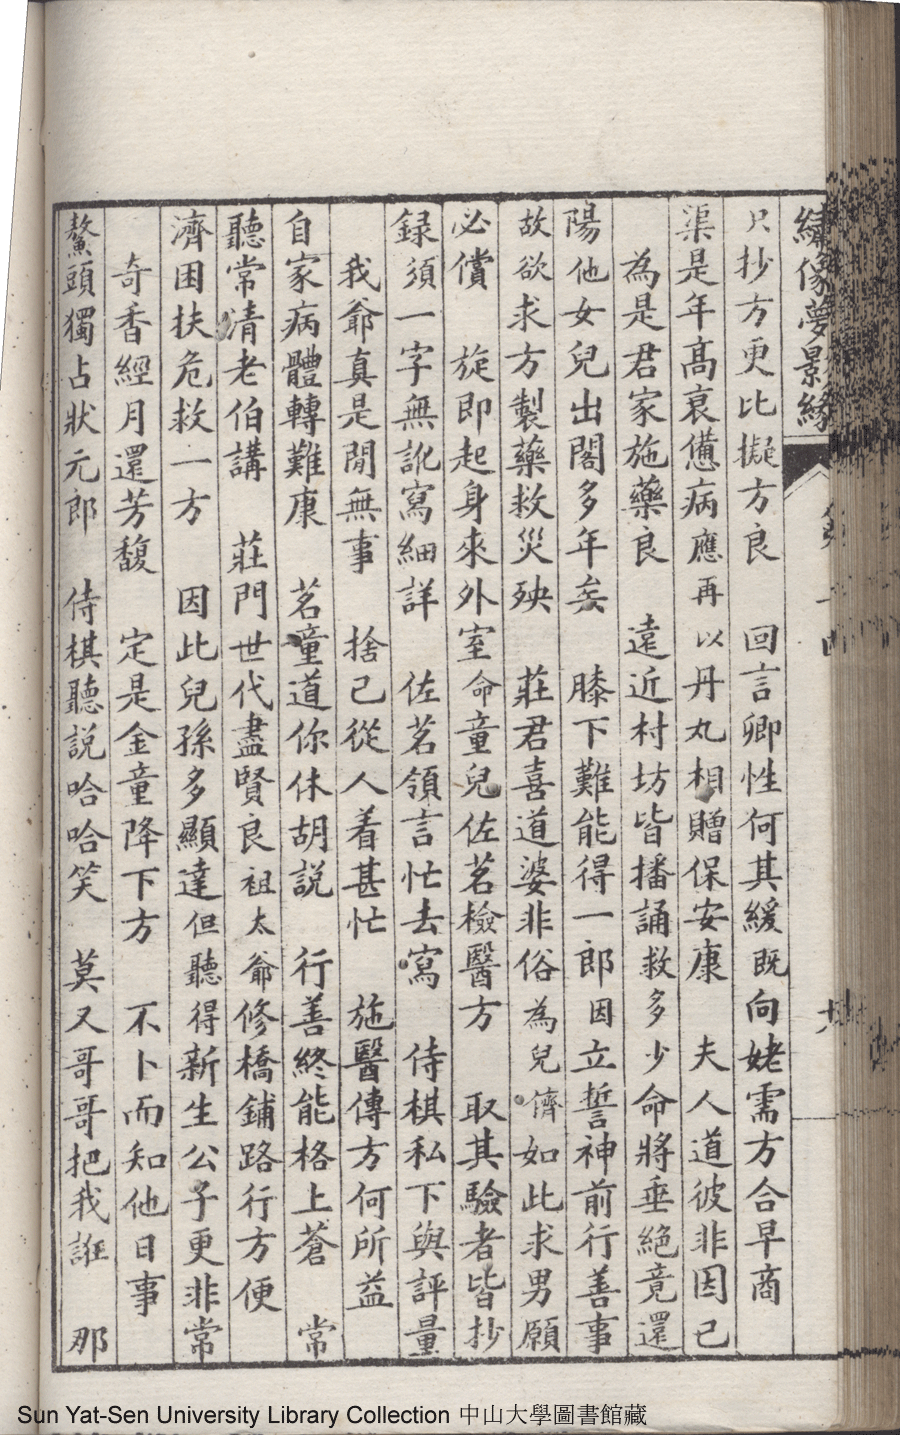 繡像夢影緣
只抄方更比擬方良　回言卿性何其緩既向姥需方合早商
渠是年高衰憊病應再以丹丸相贈保安康　夫人道彼非因己
為是君家施藥良　遠近村坊皆播誦救多少命將垂絕竟還
陽他女兒出閣多年矣　膝下難能得一郎因立誓神前行善事
故欲求方製藥救災殃　莊君喜道婆非俗為兒儕如此求男願
必償　旋即起身來外室命童兒佐茗檢醫方　取其驗者皆抄
録須一字無訛寫細詳　佐茗領言忙去寫　侍棋私下與評量
我爺真是閒無事　捨己從人着甚忙　施醫傳方何所益
自家病體轉難康　茗童道你休胡説　行善終能格上蒼　常
聽常清老伯講　莊門世代盡賢良祖太爺修橋鋪路行方便
濟困扶危救一方　因此兒孫多顯達但聽得新生公子更非常
奇香經月還芳馥　定是金童降下方　不卜而知他日事
鰲頭獨占狀元郎　侍棋聽説哈哈笑　莫又哥哥把我誑　那
Sun Yat-Sen University Library Collection 中山大學圖書館藏